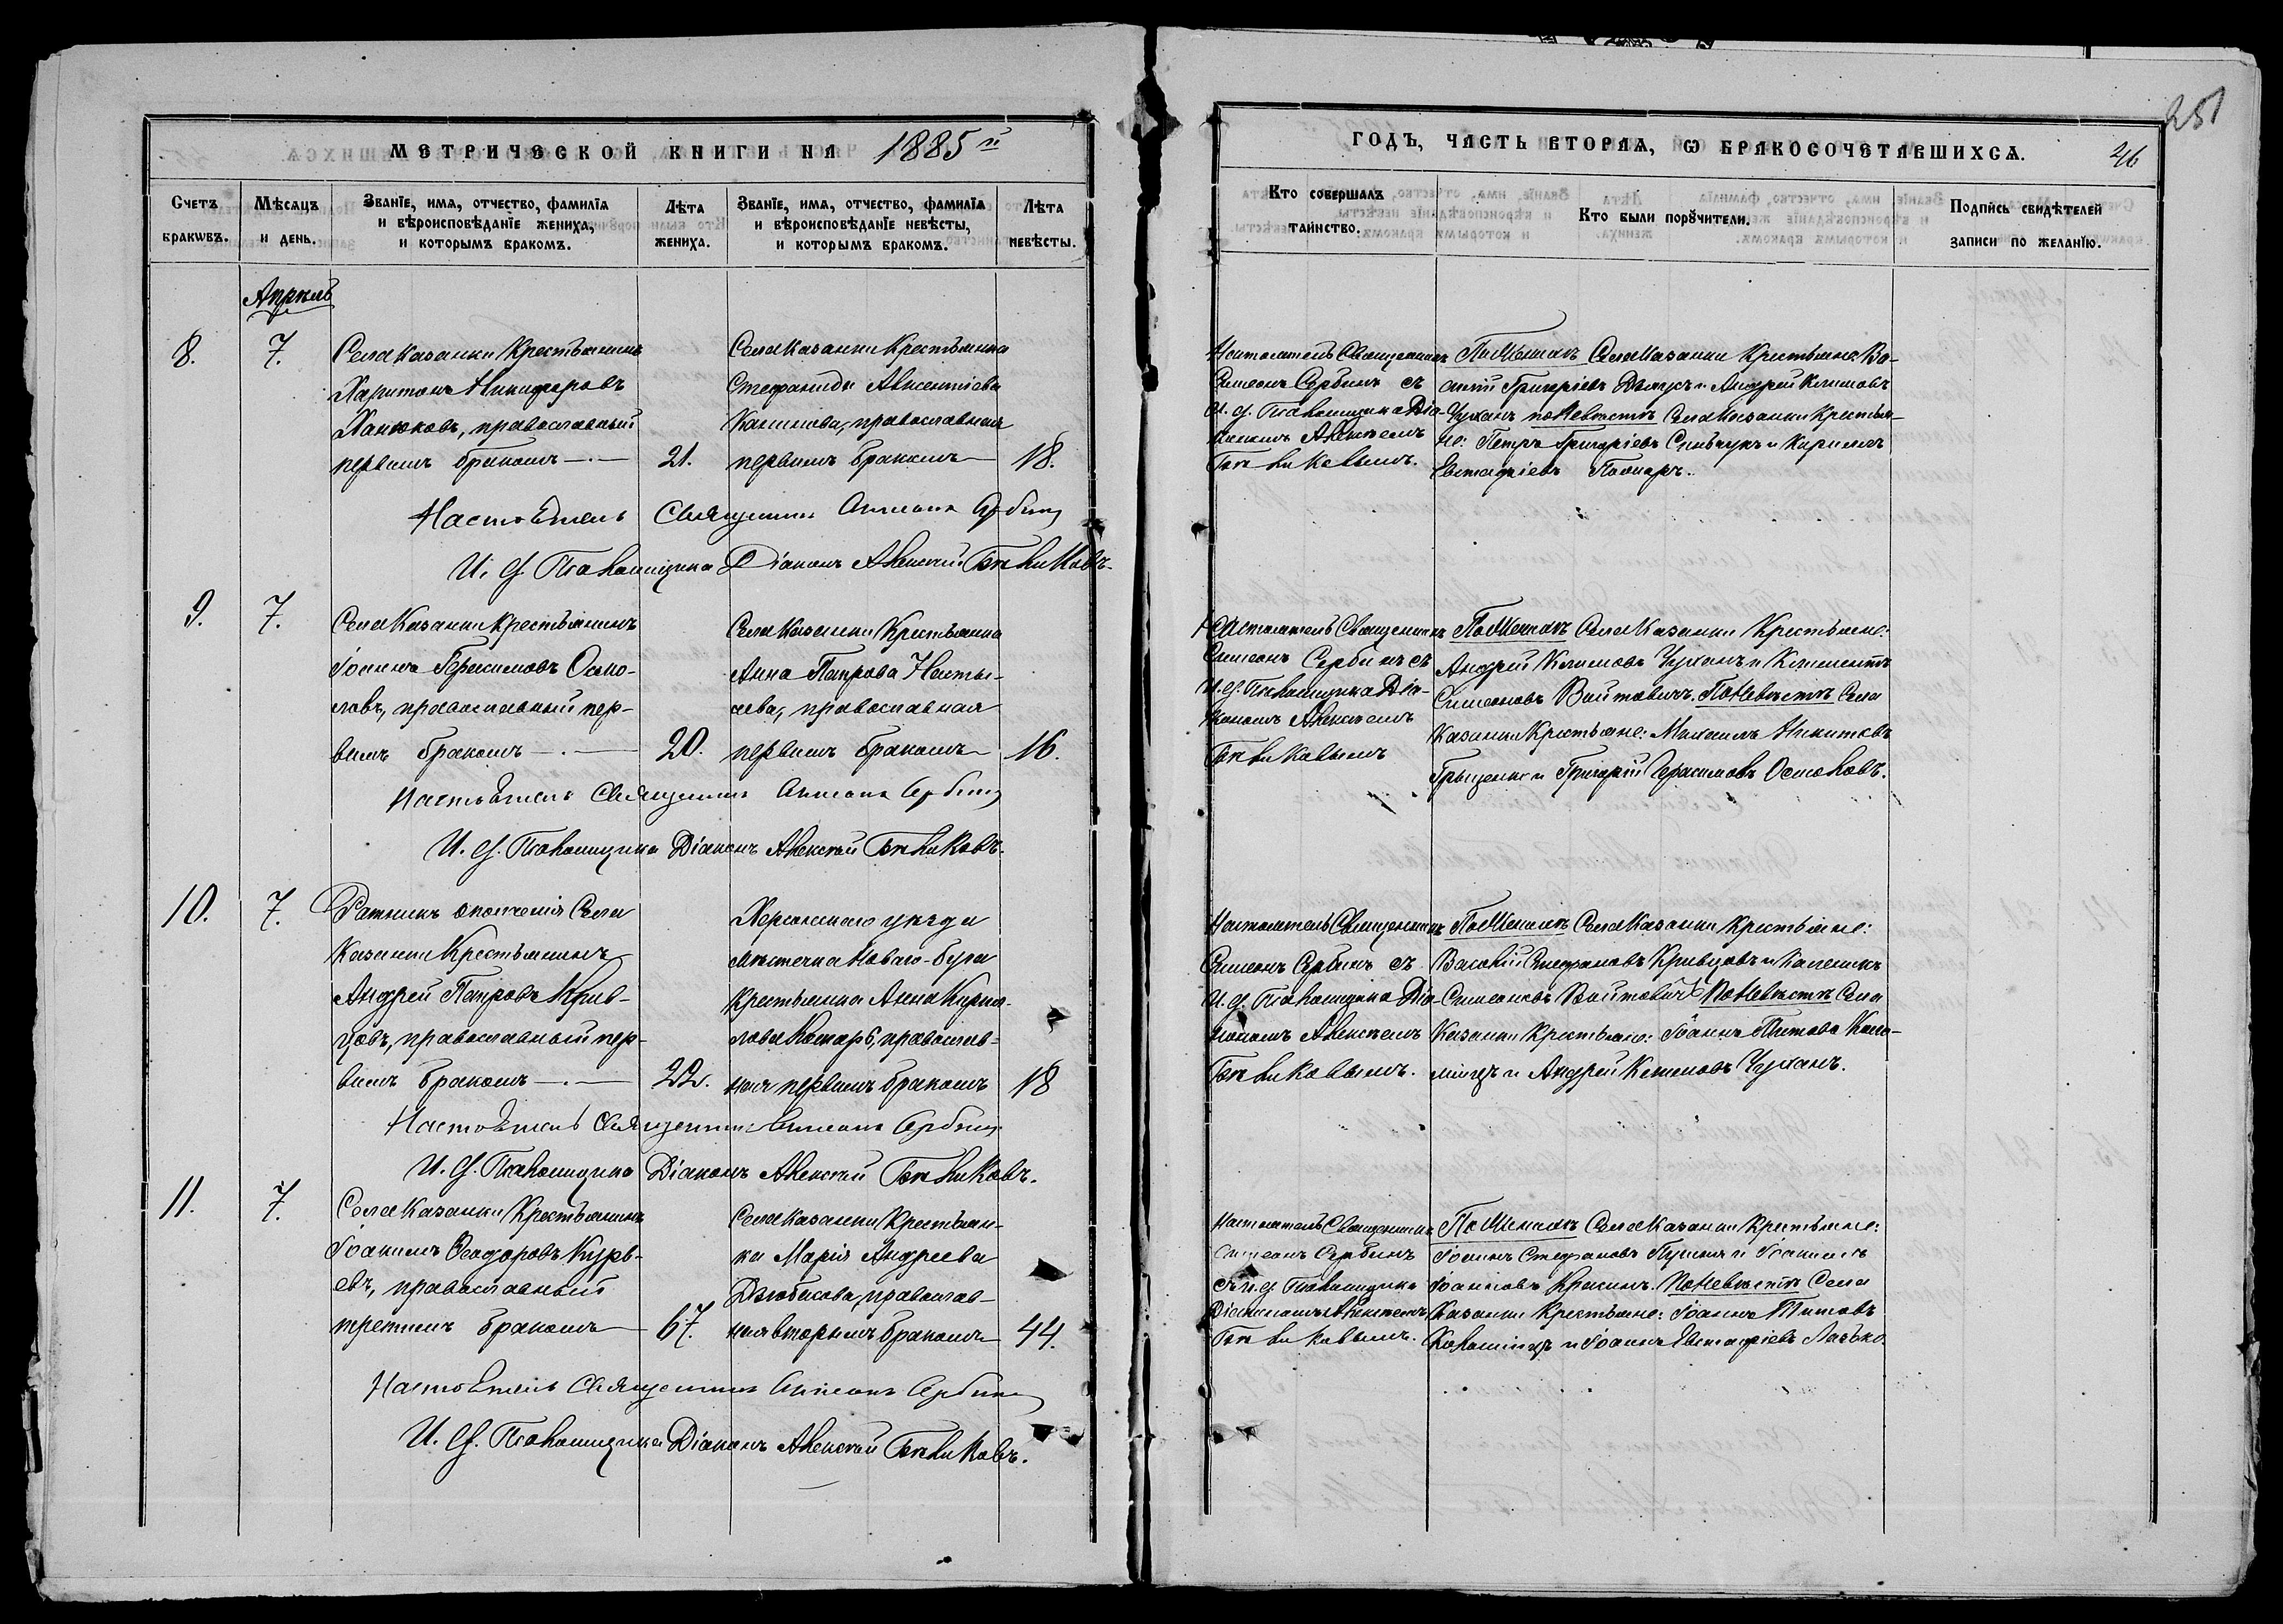 251
МЕТРИЧЕСКОЙ КНИГИ НА 1885й
ГОДЪ, ЧАСТЬ ВТОРАѦ, Ѡ БРАКОСОЧЕТАВШИХСѦ.
46
Счетъ бракѡвъ.
Мѣсяцъ и день.
Званїе, имѧ, отчество, фамилїѧ
и вѣроисповѣданїе жениха,
и которымъ бракомъ.
Лѣта жениха.
Званїе, имѧ, отчество, фамилїѧ
и вѣроисповѣданїе невѣсты,
и которымъ бракомъ.
Лѣта невѣсты.
Кто совершалъ
таинство.
Кто были порꙋчители.
Подпись свидѣтелей
записи по желанїю.
Апрѣль
8.
7.
Села Казанки Крестьянинъ
Харитонъ Никифоровъ
Ханюковъ, православный
первымъ бракомъ
21.
Села Казанки Крестьянка
Стефанида Авксентіева
православная
первымъ бракомъ
18.
Настоятель Священникъ
Симеонъ Сербинъ съ
И. д. Псаломщика Діа-
кономъ Алексѣемъ
По Женихѣ Села Казанки Крестьяне: Ва-
силій Григоріевъ и Андрей Климовъ
Чуханъ по Невѣстѣ Села Казанки Крестья-
не: Петръ Григоріевъ и Кириллъ
Евстафіевъ
Настоятель Священникъ Симеонъ Сербинъ
И. д. Псаломщика Діаконъ Алексѣй
9.
7.
Села Казанки Крестьянинъ
Іоаннъ Герасимовъ Осмо-
ловъ, православный пер-
вымъ бракомъ
20.
Села Казанки Крестьянка
Анна Петрова
православная
первымъ бракомъ
16.
Настоятель Священникъ
Симеонъ Сербинъ съ
И. д. Псаломщика Діа-
кономъ Алексѣемъ
По Женихѣ Села Казанки Крестьяне:
Андрей Климовъ Чуханъ и Климентъ
Симеоновъ Войтовичъ. По Невѣстѣ Села
Казанки Крестьяне: Михаилъ Никитовъ
Грыценко и Григорій Герасимовъ Осмоловъ.
Настоятель Священникъ Симеонъ Сербинъ
И. д. Псаломщика Діаконъ Алексѣй
10.
7.
Ратникъ ополченія Села
Казанки Крестьянинъ
Андрей Петровъ Крив-
цовъ, православный пер-
вымъ бракомъ
22.
Херсонскаго уѣзда
мѣстечка Новаго-Буга
Крестьянка Анна Кирил-
лова православ-
ная первымъ бракомъ
18
Настоятель Священникъ
Симеонъ Сербинъ съ
И. д. Псаломщика Діа-
кономъ Алексѣемъ
По Женихѣ Села Казанки Крестьяне:
Василій Стефановъ Кривцовъ и Каленикъ
Симеоновъ Войтовичъ По Невѣстѣ Села
Казанки Крестьяне: Іоаннъ Титовъ Коло-
міецъ и Андрей Климовъ Чуханъ.
Настоятель Священникъ Симеонъ Сербинъ
И. д. Псаломщика Діаконъ Алексѣй
11.
7.
Села Казанки Крестьянинъ
Іоакимъ Ѳеодоровъ Курь-
евъ, православный
третьимъ бракомъ
67.
Села Казанки Крестьян-
ка Марія Андреева
православ-
ная вторымъ бракомъ
44.
Настоятель Священникъ
Симеонъ Сербинъ
съ и. д. Псаломщика
Діакономъ Алексѣемъ
По Женихѣ Села Казанки Крестьяне:
Іоаннъ Стефановъ и Іоакимъ
Іоанновъ По Невѣстѣ Села
Казанки Крестьяне: Іоаннъ Титовъ
Коломіецъ и Іоаннъ Евстафіевъ
Настоятель Священникъ Симеонъ Сербинъ
И. д. Псаломщика Діаконъ Алексѣй